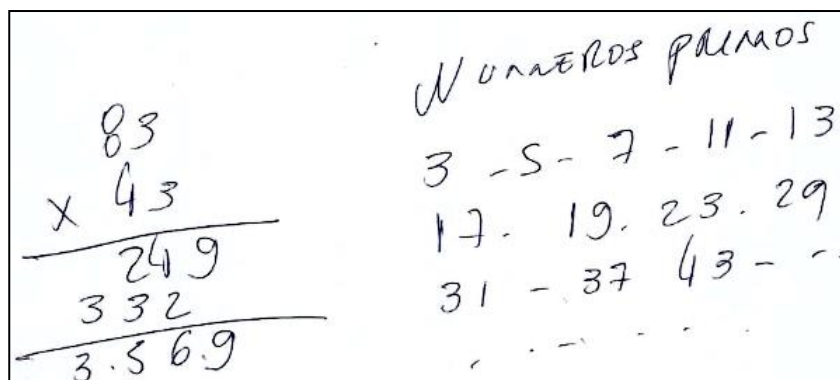 83
x 43
249
332
3.569
NUMEROS PRIMOS
3 - 5 - 7 - 11 - 13
17. 19. 23. 29
31 - 37 43 - - .
. . - . . .